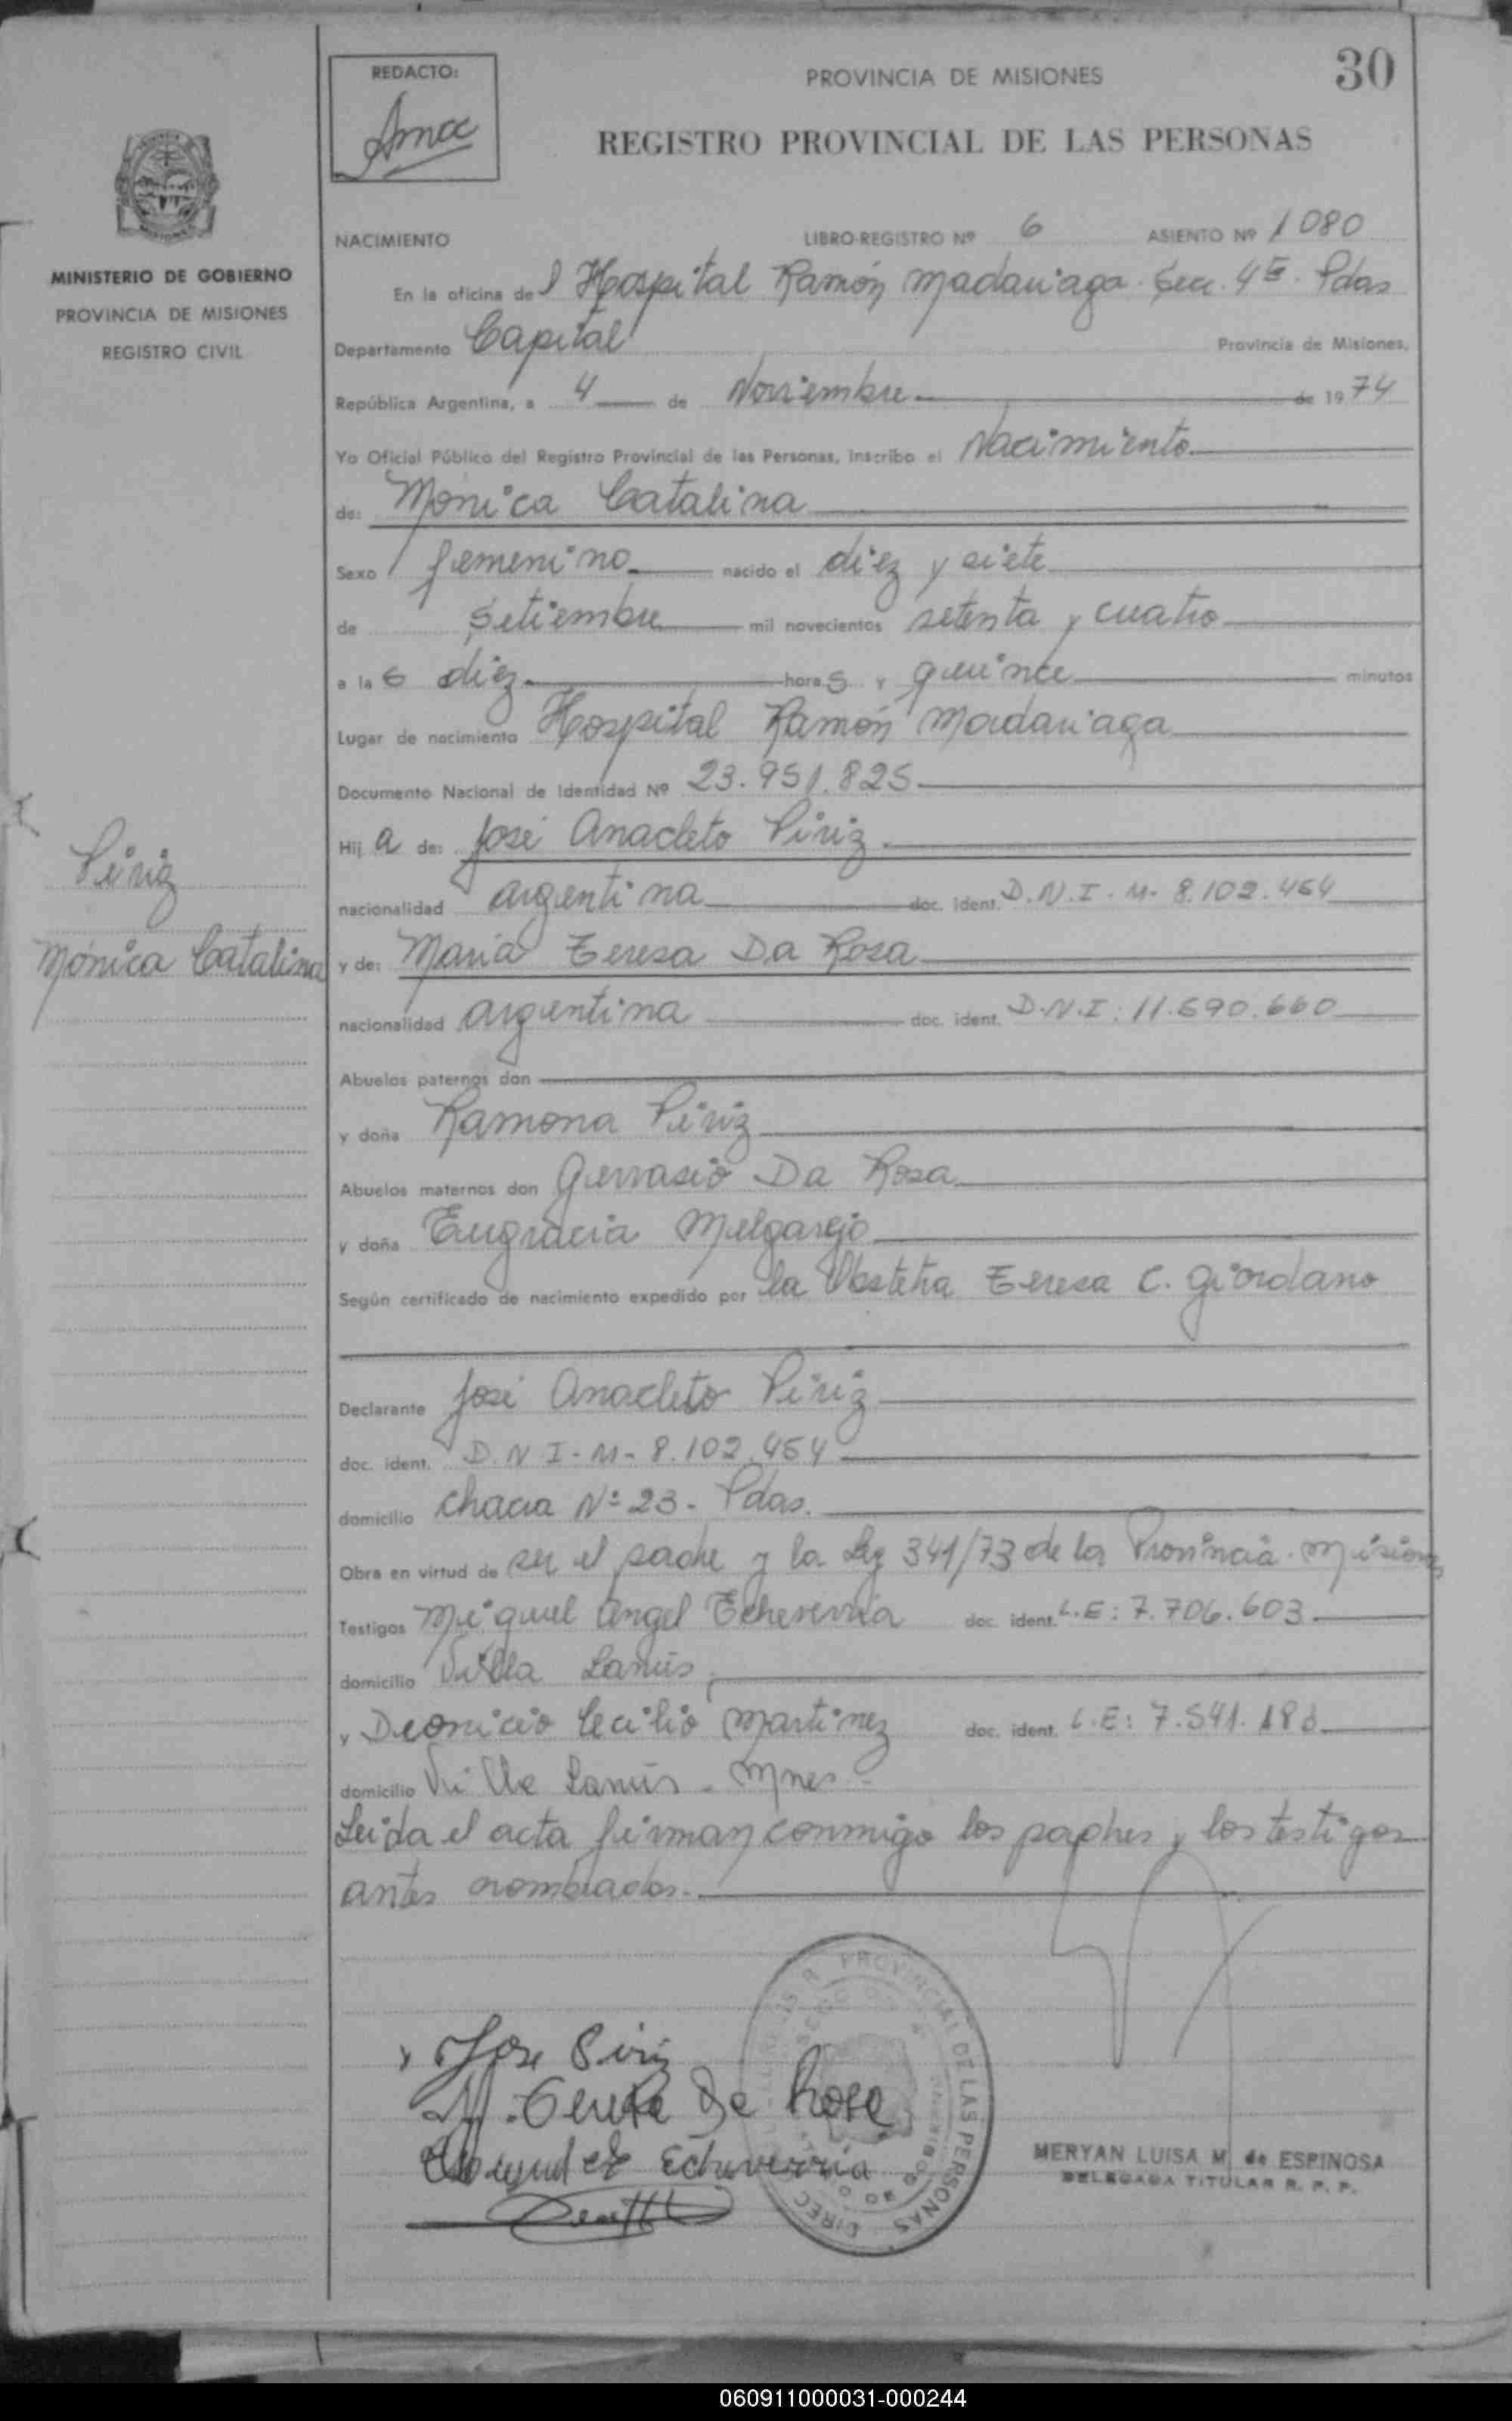 30
REDACTO:
PROVINCIA DE MISIONES
REGISTRO PROVINCIAL DE LAS PERSONAS
MINISTERIO DE GOBIERNO
PROVINCIA DE MISIONES
REGISTRO CIVIL
NACIMIENTO LIBRO-REGISTRO Nº 6 ASIENTO Nº 1080
En la oficina del Hospital Ramón Madariaga. Secc. 4ª. Pdas
Departamento Capital Provincia de Misiones,
República Argentina, a 4 de Noviembre de 1974
Yo Oficial Público del Registro Provincial de las Personas, inscribo el Nacimiento
de: Mónica Catalina
Sexo femenino nacido el diez y siete
de Setiembre mil novecientos setenta y cuatro
a las diez horas y quince minutos
Lugar de nacimiento Hospital Ramón Madariaga
Documento Nacional de Identidad Nº 23.951.825
Hija de: José Anacleto Píriz
nacionalidad argentina doc. ident. D.N.I.-M- 8.102.454
y de: María Teresa Da Rosa
nacionalidad argentina doc. ident. D.N.I: 11.690.660
Abuelos paternos don
y doña Ramona Píriz
Abuelos maternos don Gervasio Da Rosa
y doña Eugracia Melgarejo
Según certificado de nacimiento expedido por la Obstetra Teresa C. Giordano
Declarante José Anacleto Píriz
doc. ident. D.N.I-M-8.102.454
domicilio Chacra Nº 23- Pdas.
Obra en virtud de ser el padre y la Ley 341/73 de la Provincia. Misiones
Testigos Miguel Angel Echeverria doc. ident. L.E: 7.706.603
domicilio Villa Lanús
y Dionicio Cecilio Martinez doc. ident. L.E: 7.541.
domicilio Villa Lanús - Mnes-
Leida el acta firman conmigo los padres y los testigos
antes nombrados.-
Píriz
Mónica Catalina
Jose Piriz
M. Teresa Da Rosa
Echeverria
PROVINCIAL DE LAS PERSONAS
MERYAN LUISA M. de ESPINOSA
DELEGADA TITULAR R. P. P.
060911000031-000244